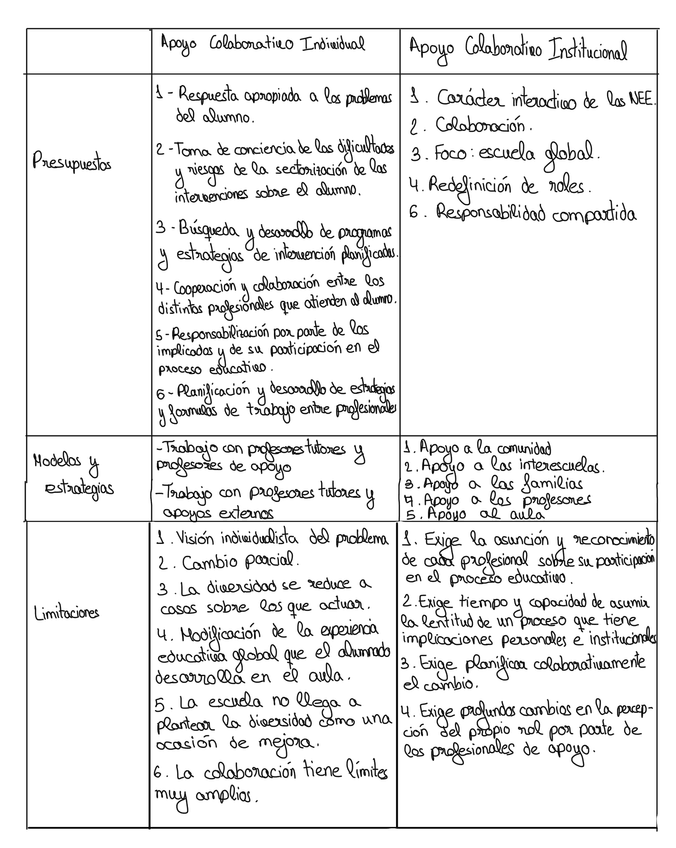 Apoyo Colaborativo Individual
Apoyo Colaborativo Institucional
Presupuestos
1 - Respuesta apropiada a los problemas
del alumno.
2 - Toma de conciencia de las dificultades
y riesgos de la sectorización de las
intervenciones sobre el alumno.
3 - Búsqueda y desarrollo de programas
y estrategias de intervención planificadas.
4 - Cooperación y colaboración entre los
distintos profesionales que atienden al alumno.
5 - Responsabilización por parte de los
implicados y de su participación en el
proceso educativo.
6 - Planificación y desarrollo de estrategias
y formulas de trabajo entre profesionales
1. Carácter interactivo de las NEE.
2. Colaboración.
3. Foco: escuela global.
4. Redefinición de roles.
6. Responsabilidad compartida
Modelos y
estrategias
- Trabajo con profesores tutores y
profesores de apoyo
- Trabajo con profesores tutores y
apoyos externos
1. Apoyo a la comunidad
2. Apoyo a las interescuelas.
3. Apoyo a las familias
4. Apoyo a los profesores
5. Apoyo al aula
Limitaciones
1. Visión individualista del problema
2. Cambio parcial.
3. La diversidad se reduce a
casos sobre los que actuar.
4. Modificación de la experiencia
educativa global que el alumnado
desarrolla en el aula.
5. La escuela no llega a
plantear la diversidad como una
ocasión de mejora.
6. La colaboración tiene límites
muy amplios.
1. Exige la asunción y reconocimiento
de cada profesional sobre su participación
en el proceso educativo.
2. Exige tiempo y capacidad de asumir
la lentitud de un proceso que tiene
implicaciones personales e institucionales
3. Exige planificar colaborativamente
el cambio.
4. Exige profundos cambios en la percep-
ción del propio rol por parte de
los profesionales de apoyo.